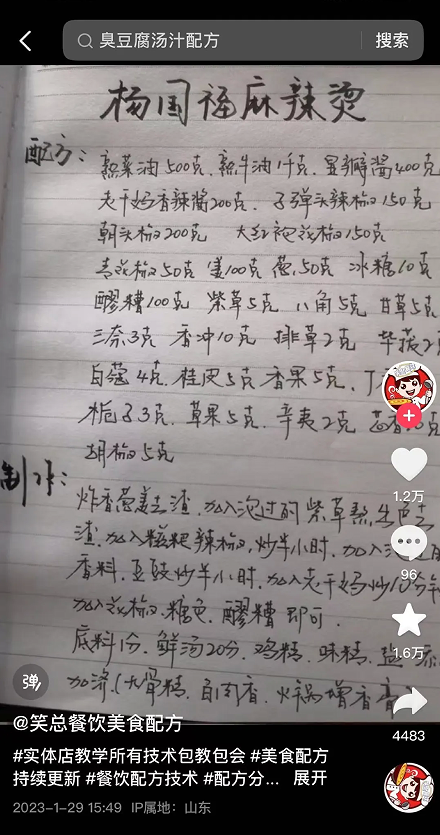 臭豆腐汤汁配方
搜索
杨国福麻辣烫
配方:
熟菜油500克、熟牛油1千克、豆瓣酱400克
老干妈香辣酱200克、子弹头辣椒150克
朝天椒200克 大红袍花椒150克
青花椒50克 姜100克 葱50克 冰糖10克
醪糟100克 紫草5克 八角5克 甘草5克
三奈3克 香冲10克 排草2克 荜茇2
白蔻4克、桂皮5克 香果5克、丁
栀子3克、草果5克、辛夷2克 茴香
胡椒5克
制作:
炸香葱姜去渣、加入泡过的紫草熬生色去
渣、加入糍粑辣椒、炒半小时、加入泡过的
香料、豆豉炒半小时、加入老干妈炒10分
加入花椒、糖色、醪糟即可.
底料1份、鲜汤20分、鸡精、味精、盐、添
加济、(大骨精、自闭香、火锅增香膏
1.2万
96
1.6万
4483
弹
@笑总餐饮美食配方
#实体店教学所有技术包教包会 #美食配方
持续更新 #餐饮配方技术 #配方分... 展开
2023-1-29 15:49 IP属地:山东